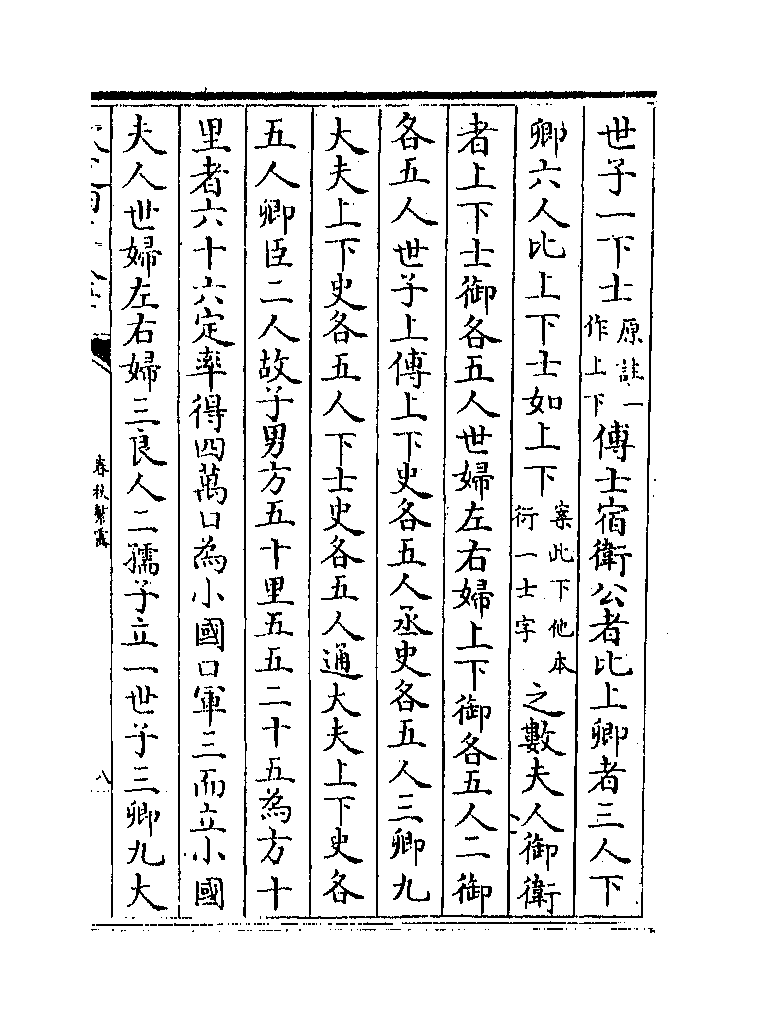 世子一下士原註一作上下傅士宿衛公者比上卿者三人下
卿六人比上下士如上下案此下他本衍一士字之數夫人御衛
者上下士御各五人世婦左右婦上下御各五人二御
各五人世子上傅上下史各五人丞史各五人三卿九
大夫上下史各五人下士史各五人通大夫上下史各
五人卿臣二人故子男方五十里五五二十五為方十
里者六十六定率得四萬口為小國口軍三而立小國
夫人世婦左右婦三良人二孺子立一世子三卿九大
春秋繁露
八